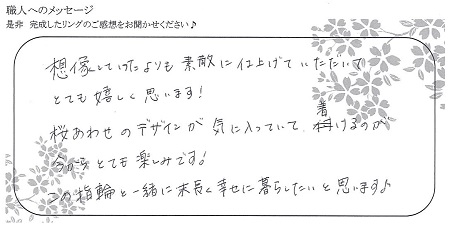 職人へのメッセージ
是非 完成したリングのご感想をお聞かせください♪
想像していたよりも素敵に仕上げていただいて
とても嬉しく思います!
桜あわせのデザインが気に入っていて、着けるのが
今からとても楽しみです。
この指輪と一緒に末長く幸せに暮らしたいと思います♪